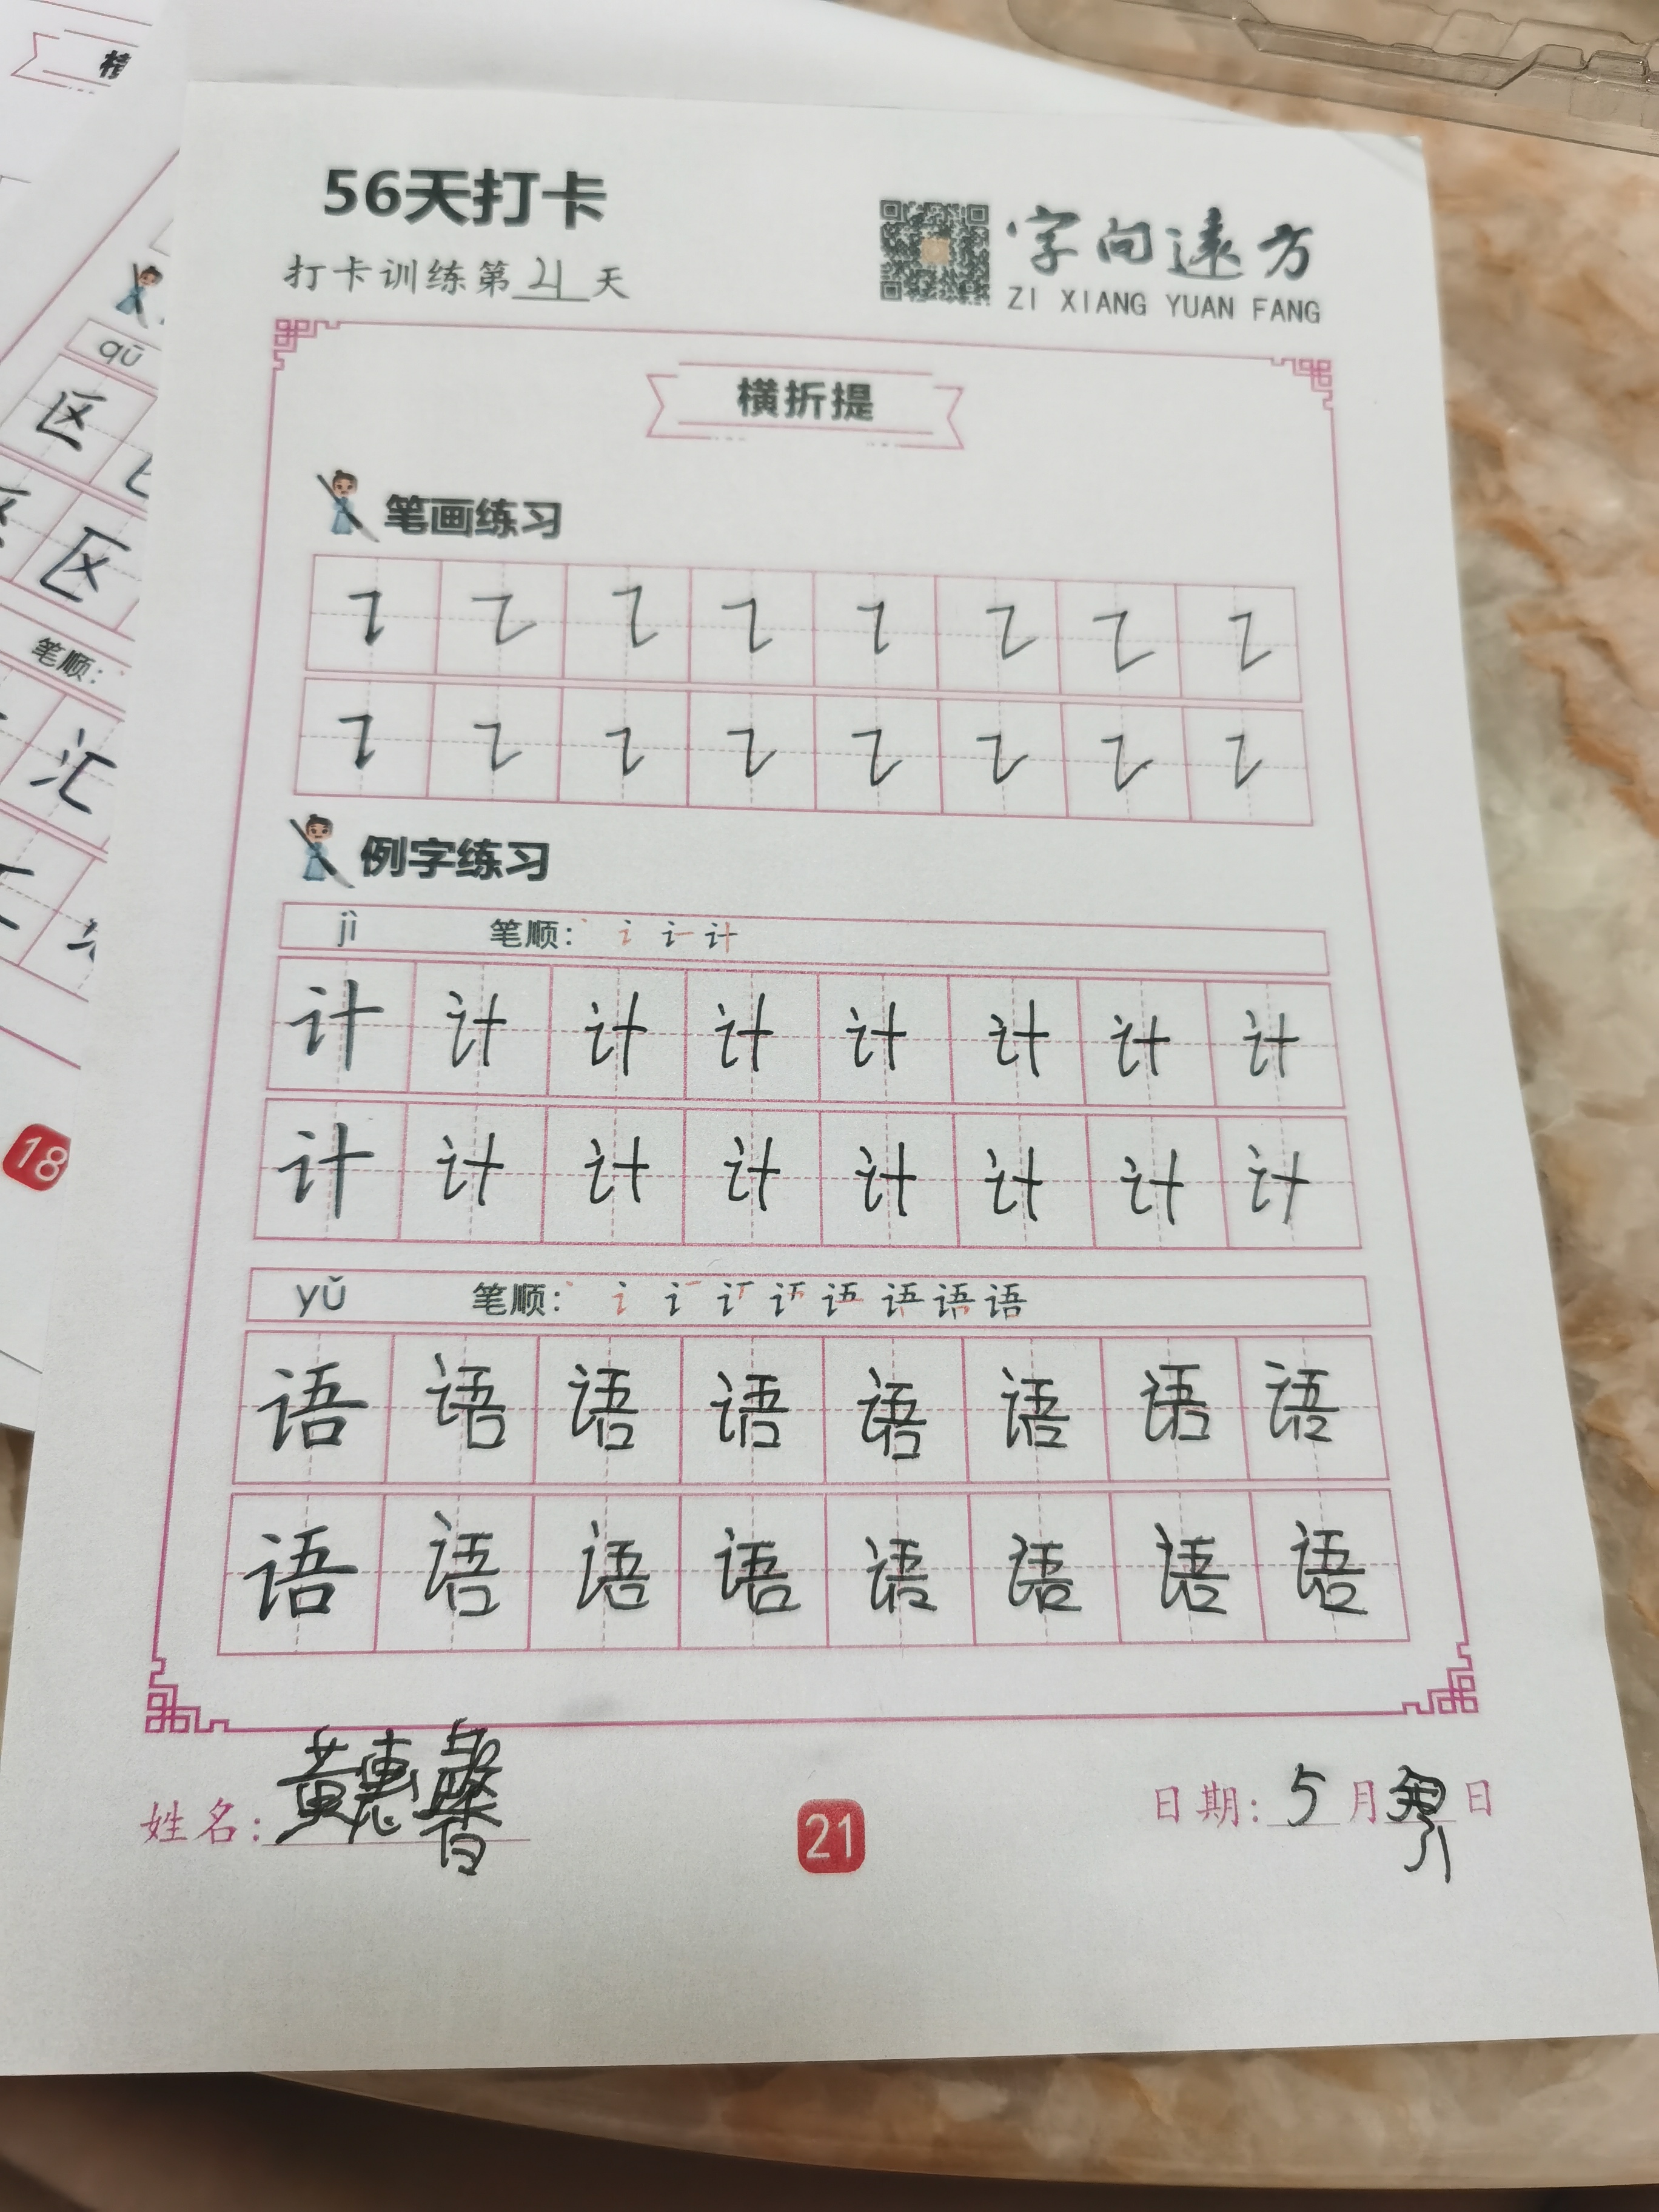 56天打卡
打卡训练第21天
字向远方
ZI XIANG YUAN FANG
横折提
笔画练习
㇊ ㇊ ㇊ ㇊ ㇊ ㇊ ㇊ ㇊
㇊ ㇊ ㇊ ㇊ ㇊ ㇊ ㇊ ㇊
例字练习
jì 笔顺:
计 计 计 计 计 计 计 计
计 计 计 计 计 计 计 计
yǔ 笔顺:
语 语 语 语 语 语 语 语
语 语 语 语 语 语 语 语
姓名:黄惠馨
21
日期:5月 日
qū
区
区
笔顺:
汇
18